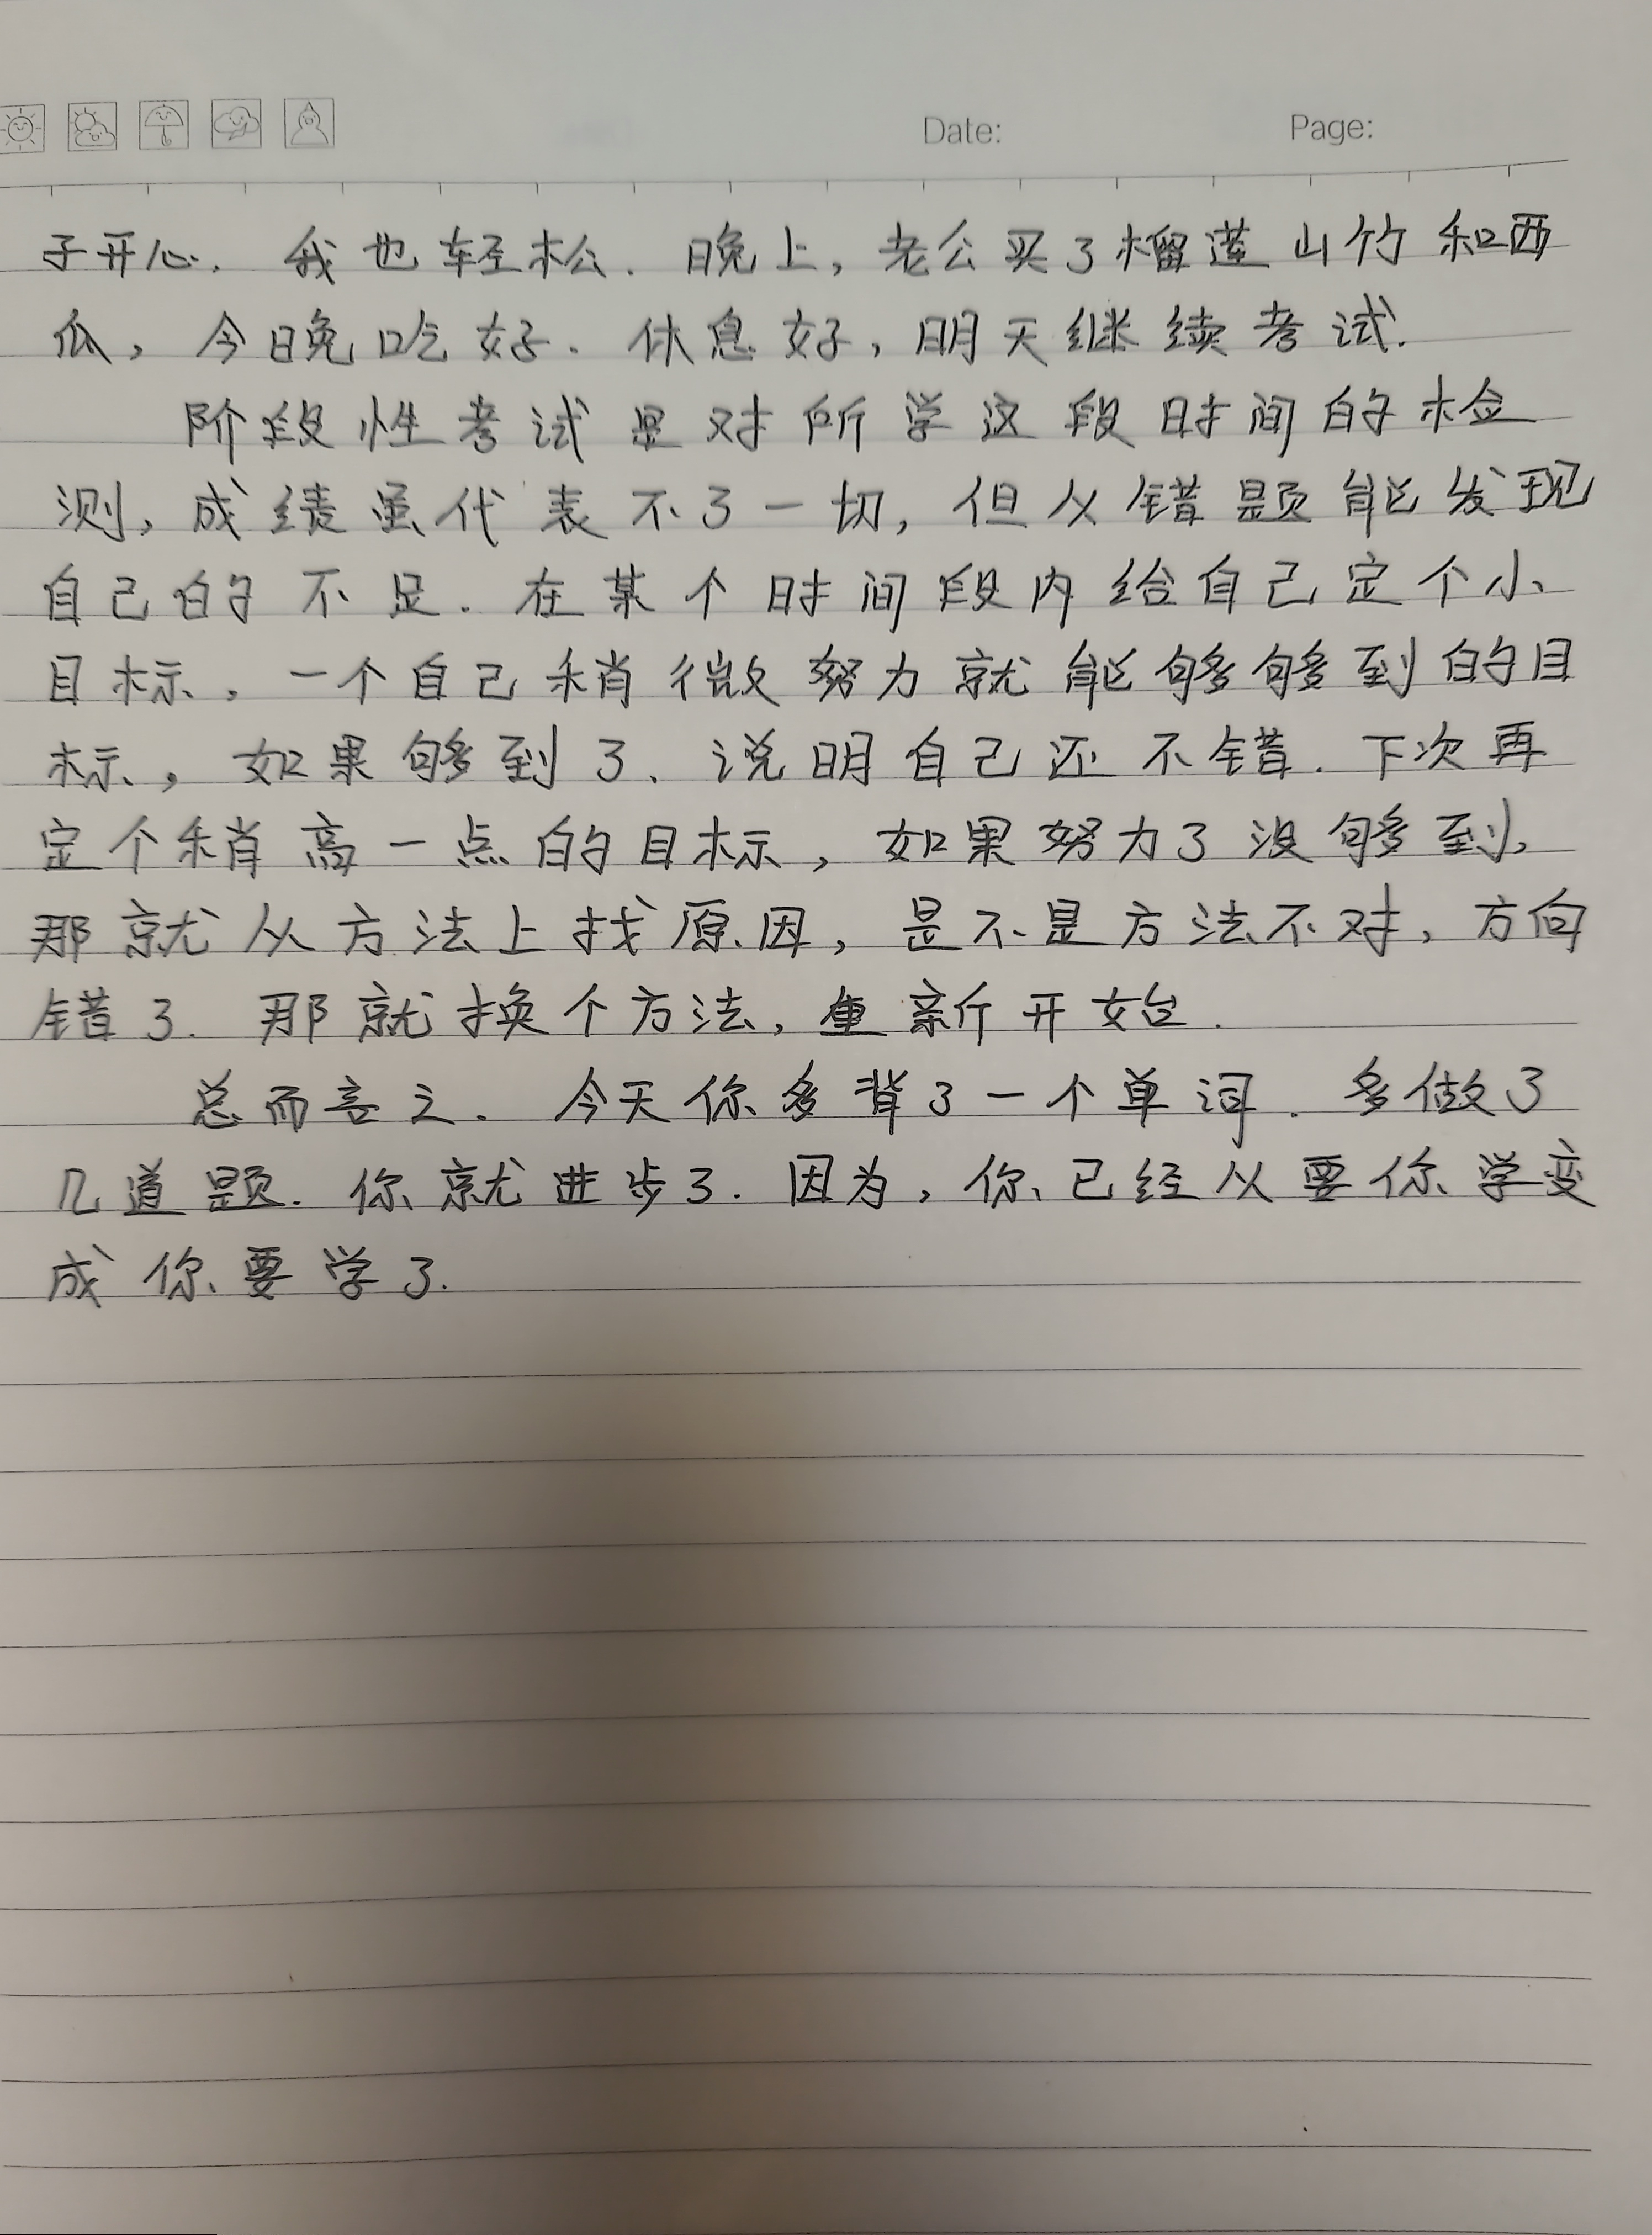 Date: Page:
子开心. 我也轻松. 晚上, 老公买了榴莲山竹和西
瓜, 今晚吃好. 休息好, 明天继续考试.
阶段性考试是对所学这段时间的检
测, 成绩虽代表不了一切, 但从错题能发现
自己的不足. 在某个时间段内给自己定个小
目标, 一个自己稍微努力就能够够到的目
标, 如果够到了、说明自己还不错. 下次再
定个稍高一点的目标, 如果努力了没够到,
那就从方法上找原因, 是不是方法不对, 方向
错了. 那就换个方法, 重新开始.
总而言之. 今天你多背了一个单词. 多做了
几道题. 你就进步了. 因为, 你已经从要你学变
成你要学了.